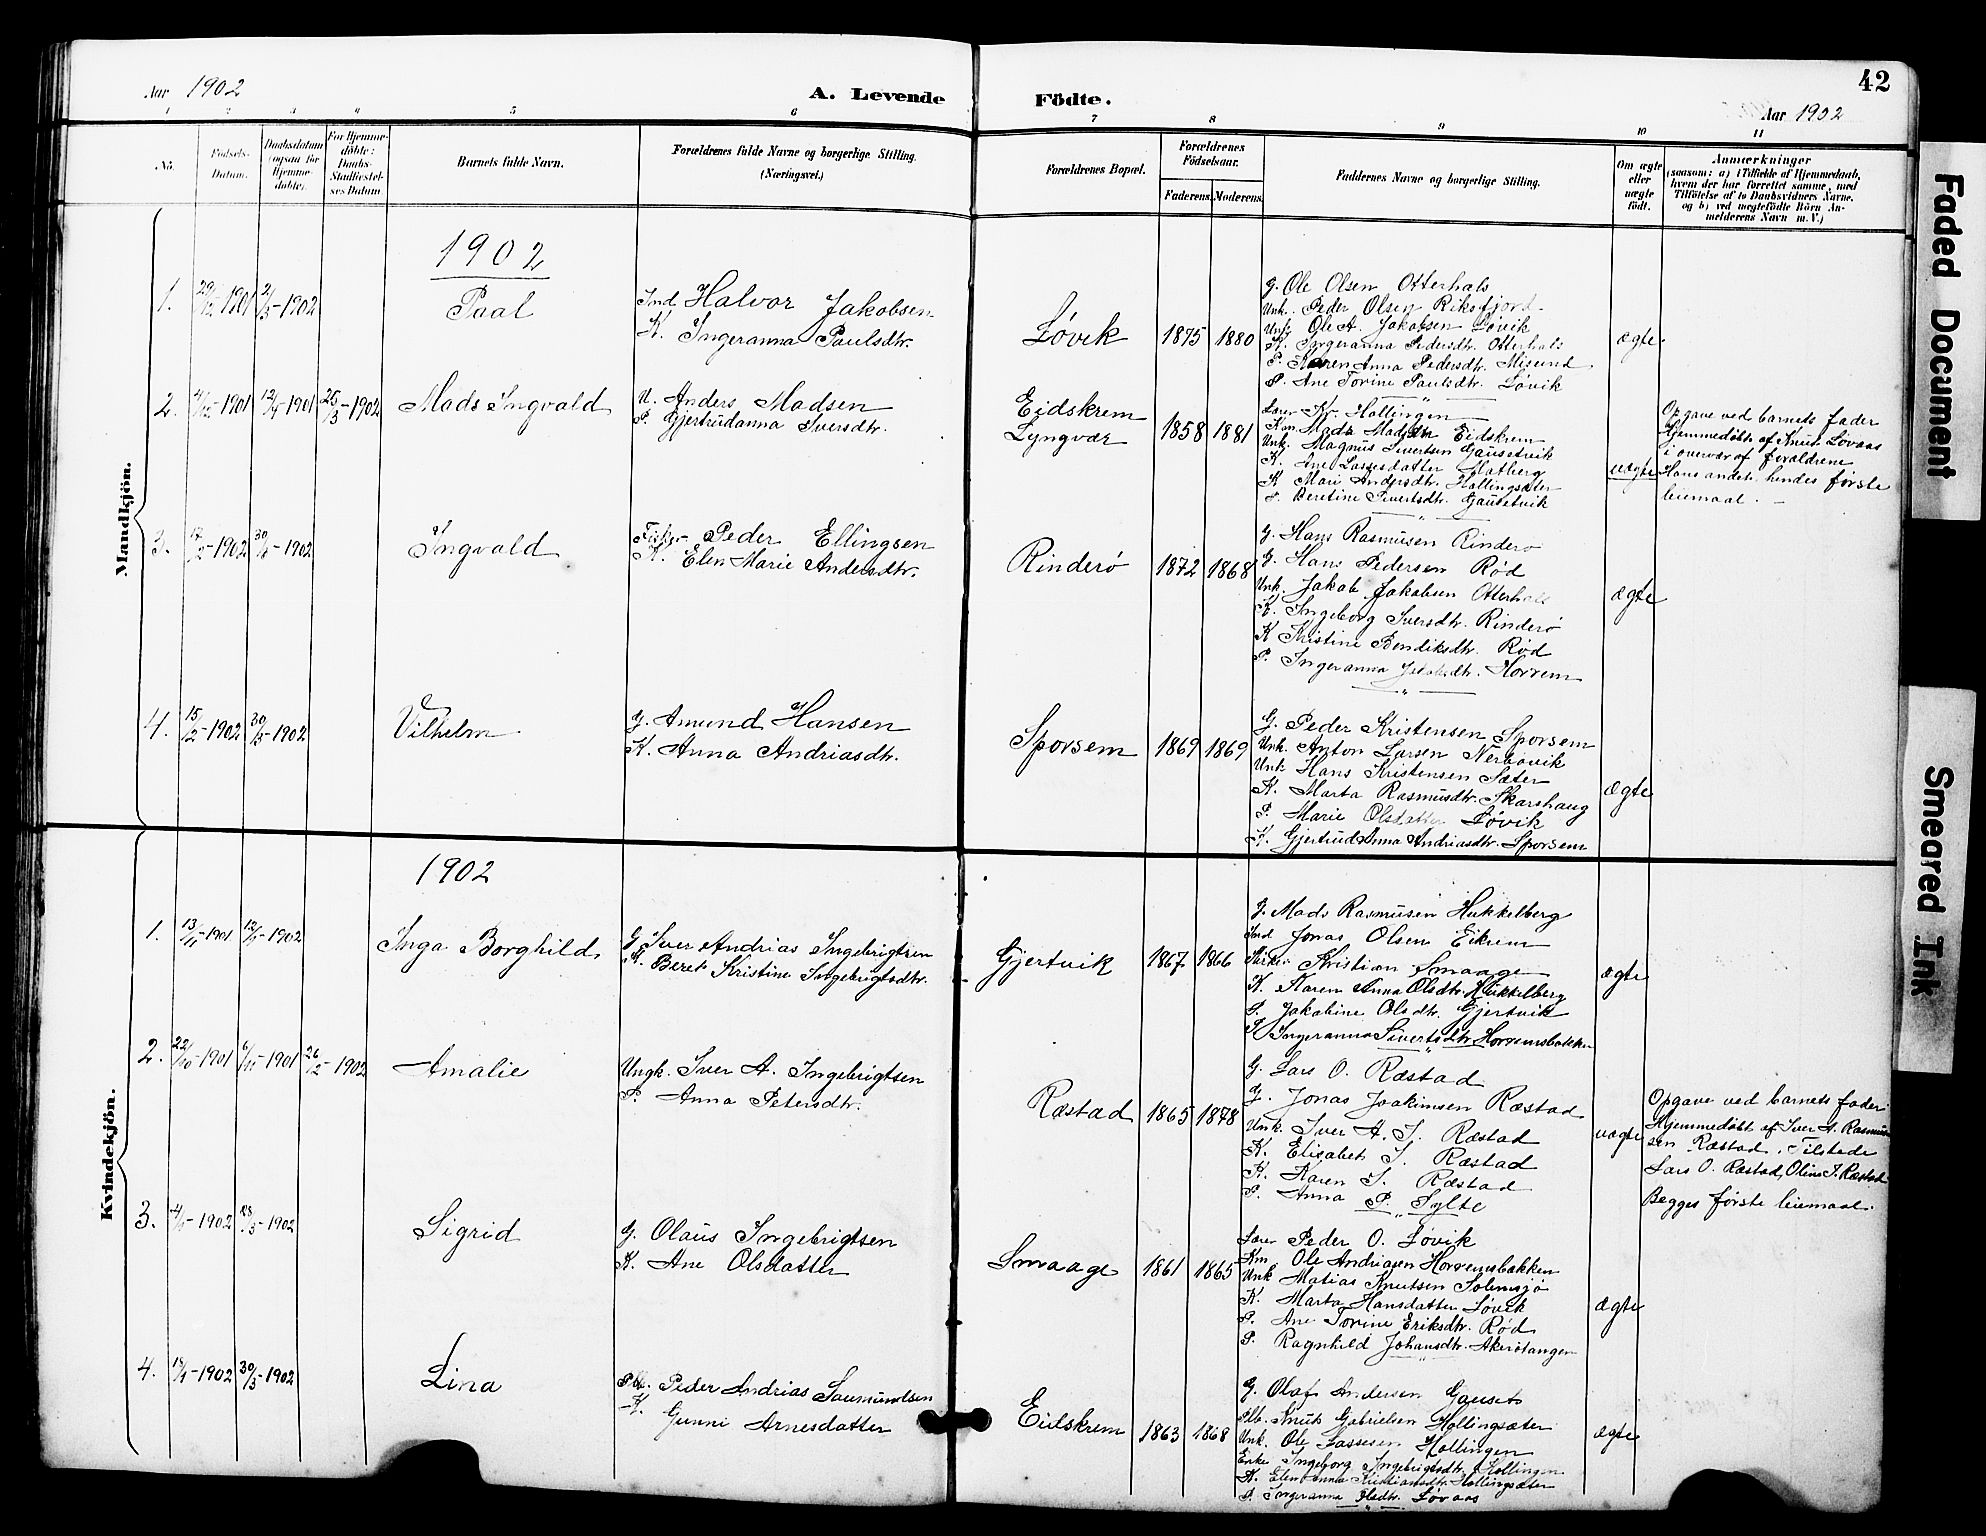 42
Aar 1902
A. Levende Födte.
Aar 1902
1 2 3 4 5 6 7 8 9 10 11
No.
Födsels-Datum.
Daabsdatum (ogsaa for Hjemme-döbte).
For Hjemme-döbte: Daabs-Stadfæstel-ses Datum
Barnets fulde Navn.
Forældrenes fulde Navne og borgerlige Stilling. (Næringsvei.)
Forældrenes Bopæl.
Forældrenes Födselsaar.
Faderens. Moderens.
Faddernes Navne og borgerlige Stilling.
Om ægte eller uægte födt.
Anmærkninger
(saasom: a) i Tilfælde af Hjemmedaab,
hvem der har forrettet samme, med
Tilföielse af to Daabsvidners Navne,
og b) ved uægtefödte Börn An-
melderens Navn m. V.)
Mandkjön.
1902
1. 29/12-1901 2/3-1902
Paal
Ind Halvor Jakobsen
K. Ingeranna Paulsdtr.
Løvik
1875 1880
G. Ole Olsen Otterhals
Unk. Peder Olsen Riksfjord
Unk Ole A. Jakobsen Løvik
K. Ingeranna Pedersdtr. Otterhals
P. Karen Anna Pedersdtr. Misund
P. Ane Torine Paulsdtr. Løvik
ægte
2. 4/12-1901 12/12-1901 25/3-1902
Mads Ingvald
U. Anders Madsen
P. Gjertrudanna Iversdtr.
Eidskrem
Lyngvær
1858 1881
Lærer Kr. Hollingen
Kon Mads Madsen Eidskrem
Unk. Magnus Sivertsen Gausetvik
K. Ane Lassesdatter Hatberg
K Mari Andersdtr. Hollingsæter
P. Beretine Sivertsdtr. Gausetvik
uægte
Opgave ved barnets fader
Hjemmedøbt af Knut Lovaas
i overvær af forældrene
Hans andet hendes første
leiemaal. -
3. 17/2-1902 30/3-1902
Ingvald
Fisker Peder Ellingsen
K. Elen Marie Andersdtr.
Rinderø
1872 1868
G. Hans Rasmusen Rinderø
G. Hans Pedersen Rød
Unk. Jakob Jakobsen Otterhals
K. Ingeborg Iversdtr. Rinderø
K Kristine Bendiksdtr. Rød
P. Ingeranna Horrem
ægte
4. 15/2-1902 30/3-1902
Vilhelm
G. Amund Hansen
K. Anna Andriasdtr.
Sporsem
1869 1869
G. Peder Kristensen Sporsem
Unk. Anton Larsen Nerbøvik
Unk Hans Kristensen Sæter
K. Marta Rasmusdtr. Skarshaug
P. Marie Olsdatter Løvik
K. Gjertrud Anna Andriasdtr. Sporsem
ægte
Kvindekjön.
1902
1. 13/11-1901 12/3-1902
Inga Borghild
G Iver Andrias Ingebrigtsen
K. Beret Kristine Ingebrigtsdtr.
Gjertvik
1867 1866
G. Mads Rasmusen Hukkelberg
Ind Jonas Olsen Eikrem
Kristian Smaage
K. Karen Anna Olsdtr. Hukkelberg
P. Jakobine Olsdtr. Gjertvik
P. Ingeranna Sivertsdtr Horremsbakken
ægte
2. 22/10-1901 6/11-1901 26/2-1902
Amalie
Ungk. Iver A. Ingebrigtsen
P. Anna Petersdtr.
Ræstad
1865 1878
G. Lars O. Ræstad
G. Jonas Joakimsen Ræstad
Unk. Iver A. I. Ræstad
K. Elisabet I. Ræstad
K. Karen I. Ræstad
P. Anna P. Sylte
uægte
Opgave ved barnets fader
Hjemmedøbt af Iver A. Rasmus-
sen Ræstad. Tilstede
Lars O. Ræstad, Olina I. Ræstad
Begges første leiemaal.
3. 4/1-1902 23/3-1902
Sigrid
G. Olaus Ingebrigtsen
K. Ane Olsdatter
Smaage
1861 1865
Lærer Peder O. Løvik
Km Ole Andriasen Horremsbakken
Unk Matias Knutsen Solemsjø
K. Marta Hansdatter Løvik
P. Ane Torine Eriksdtr. Rød
P. Ragnhild Johansdtr. Akerøtangen
ægte
4. 19/1-1902 30/3-1902
Lina
Peder Andrias Sæmundsen
K. Gunni Arnesdatter
Eidskrem
1863 1868
G. Olaf Andersen Gauset
Plb. Knut Gabrielsen Hollingsæter
Unk. Ole Lassesen Hollingen
Enke Ingeborg Ingebrigtsdtr. Hollingen
K. Elen Anna Kristiansdtr. Hollingsæter
P. Ingeranna Olsdtr. Lovaas
ægte
Faded Document
Smeared Ink